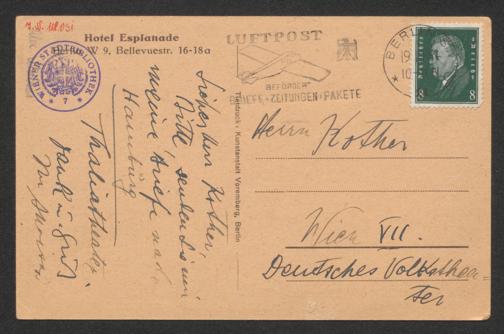 Hotel Esplanade
W 9, Bellevuestr. 16-18a
WIENER STADTBIBLIOTHEK
* 7 *
LUFTPOST
BEFÖRDERT
BRIEFE·ZEITUNGEN·PAKETE
BERLIN
Deutsches Reich
8 8
Lieber Herr Kother,
Bitte senden Sie mir
meine Briefe nach
Hamburg
Thaliatheater.
Dank u. Gruß
Ihr
Tiefdruck: Kunstanstalt Voremberg, Berlin
Herrn Kother
Wien VII.
Deutsches Volksthea-
ter